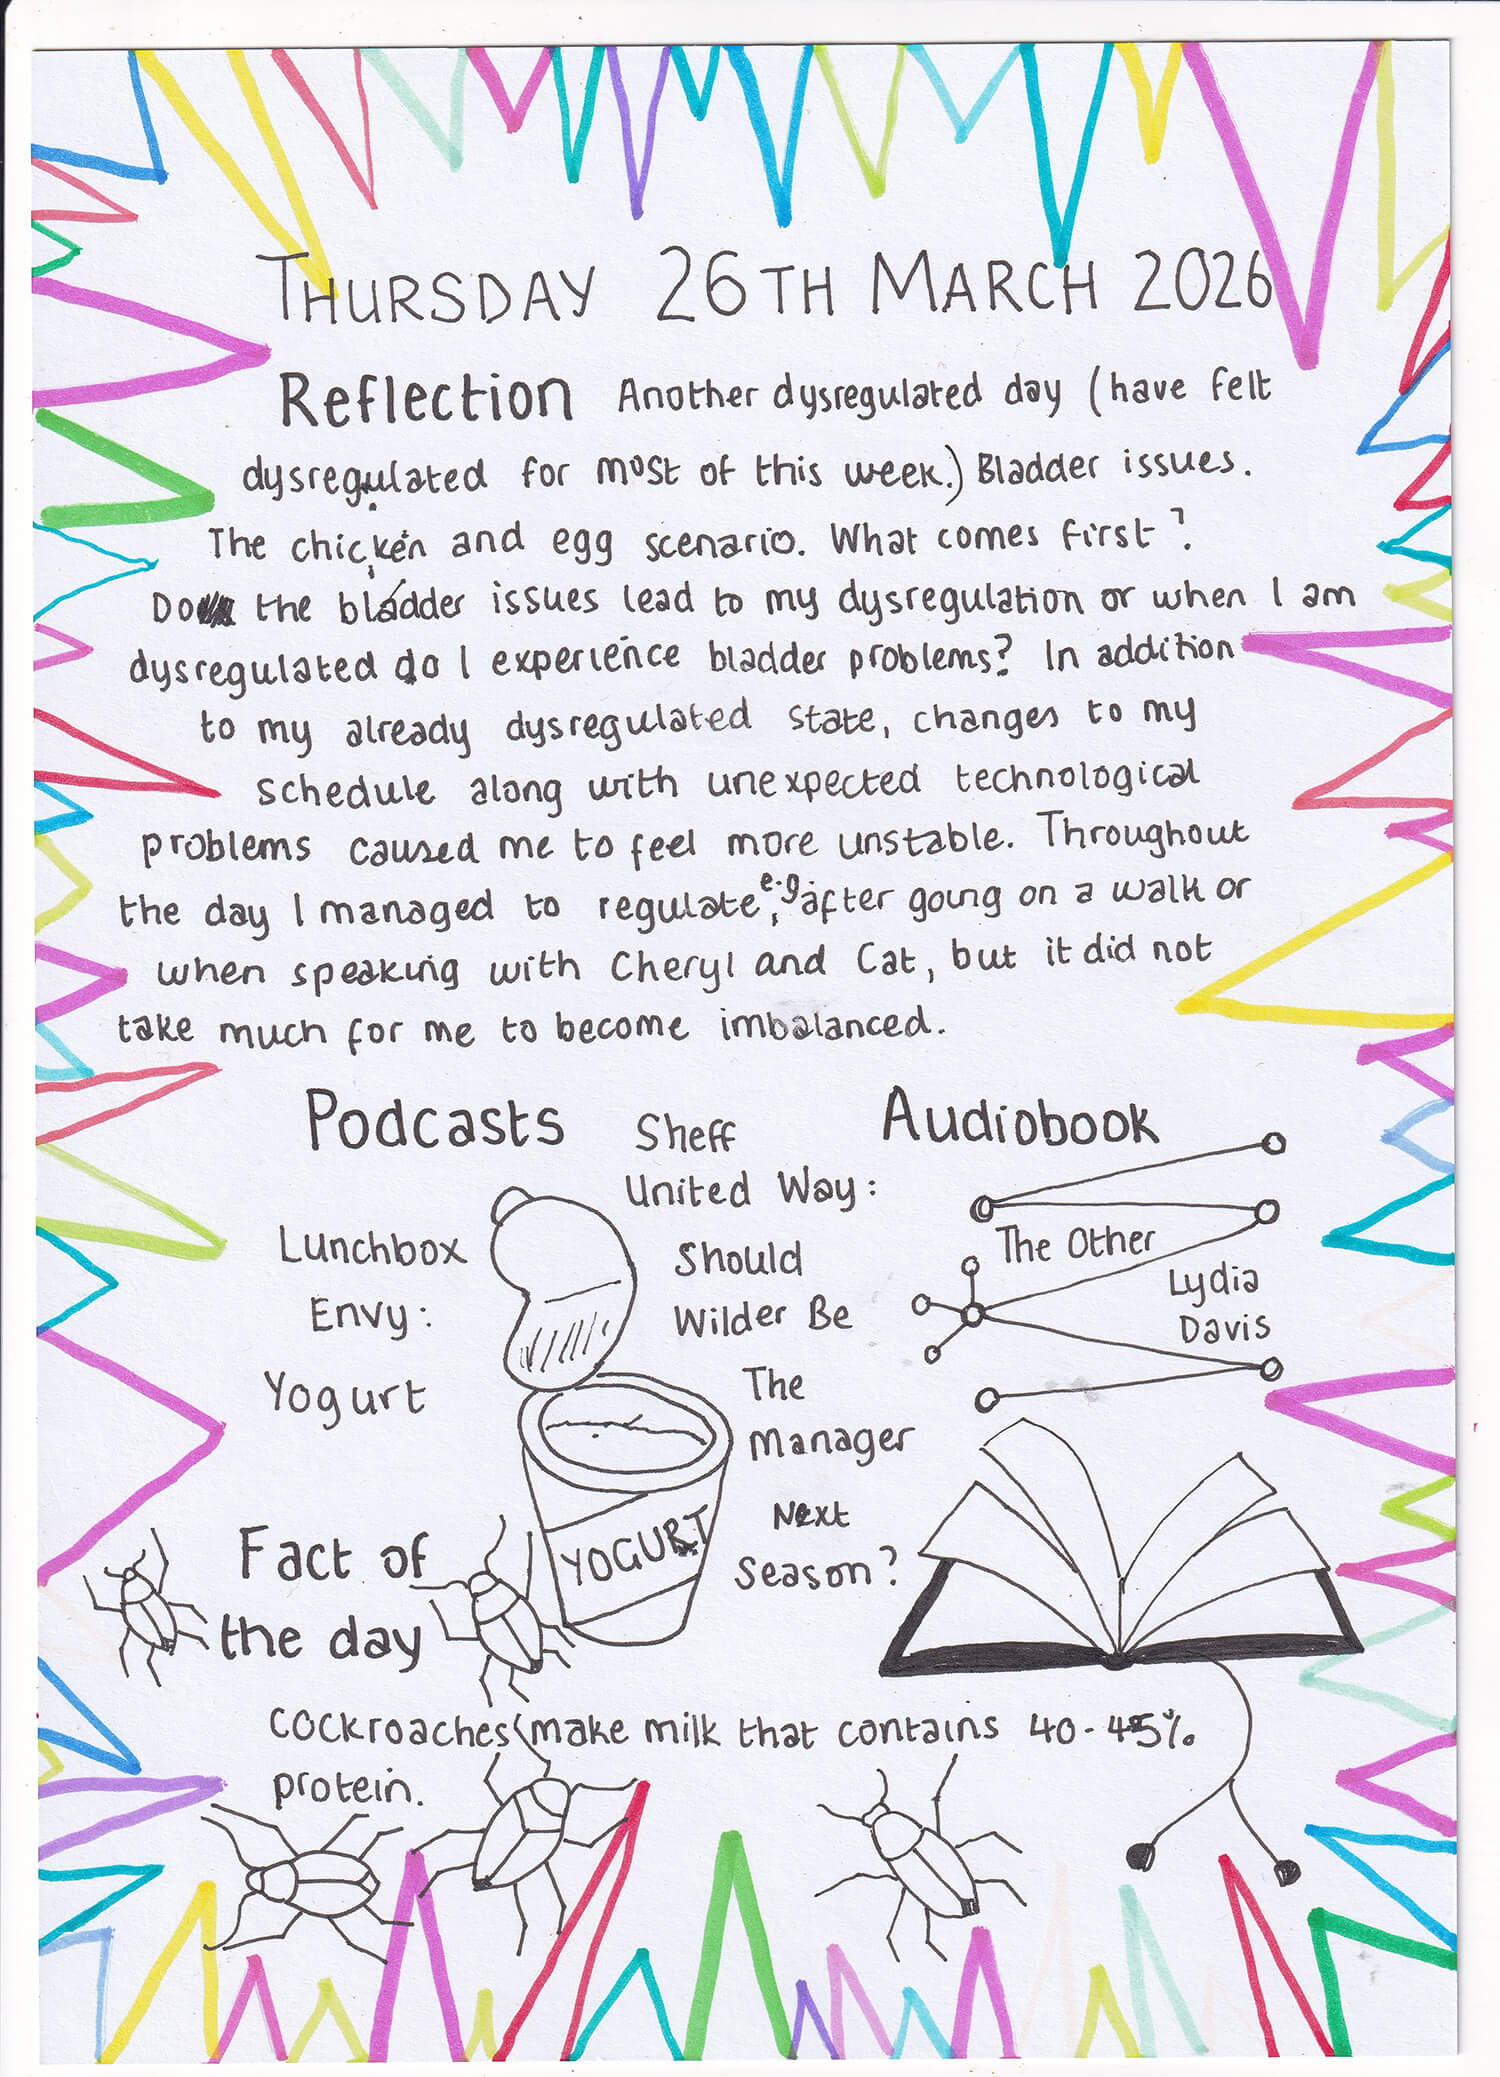 THURSDAY 26TH MARCH 2026
Reflection Another dysregulated day (have felt
dysregulated for most of this week.) Bladder issues.
The chicken and egg scenario. What comes first?
Do the bladder issues lead to my dysregulation or when I am
dysregulated do I experience bladder problems? In addition
to my already dysregulated state, changes to my
schedule along with unexpected technological
problems caused me to feel more unstable. Throughout
the day I managed to regulate, e.g. after going on a walk or
when speaking with Cheryl and Cat, but it did not
take much for me to become imbalanced.
Podcasts
Lunchbox
Envy:
Yogurt
YOGURT
Sheff
United Way:
Should
Wilder Be
The
Manager
Next
Season?
Audiobook
The Other
Lydia
Davis
Fact of
the day
Cockroaches make milk that contains 40-45%
protein.